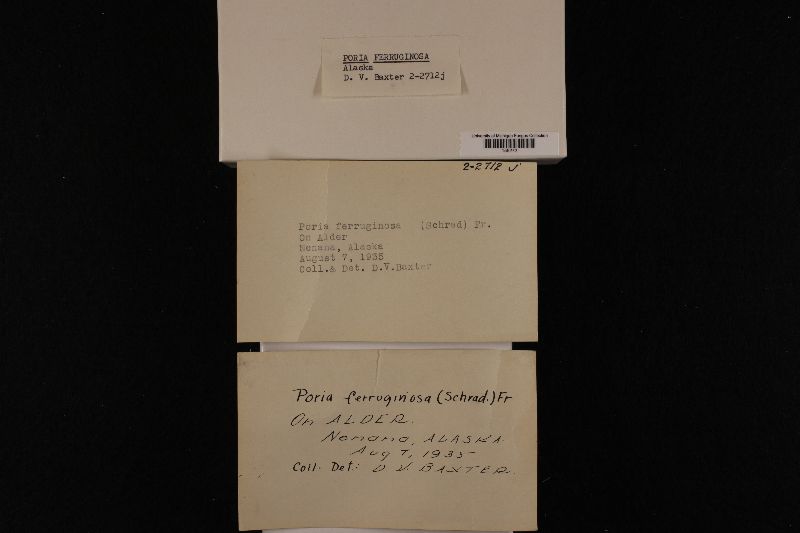 PORIA FERRUGINOSA
Alaska
D. V. Baxter 2-2712j
University of Michigan Fungus Collection
2-2712 J
Poria ferruginosa (Schrad) Fr.
On Alder
Nenana, Alaska
August 7, 1935
Coll.& Det. D.V.Baxter
Poria ferruginosa (Schrad.) Fr
On ALDER.
Nenana, ALASKA
Aug 7, 1935
Coll. Det.: D V. BAXTER.